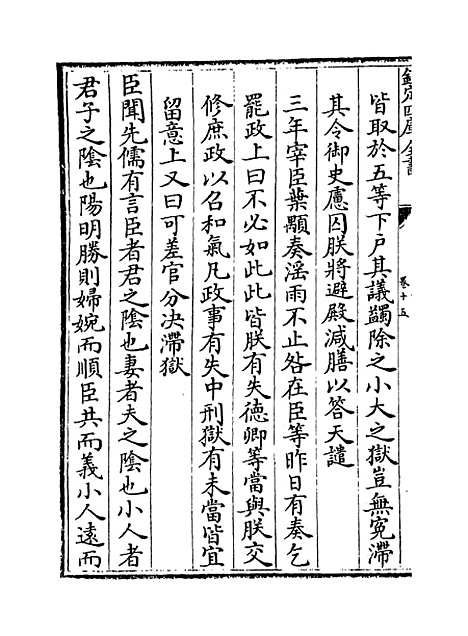 欽定四庫全書
卷十五
皆取於五等下戶其議蠲除之小大之獄豈無寃滯
其令御史慮囚朕將避殿減膳以答天譴
三年宰臣葉顒奏淫雨不止咎在臣等昨日有奏乞
罷政上曰不必如此此皆朕有失徳卿等當與朕交
修庶政以召和氣凡政事有失中刑獄有未當皆宜
留意上又曰可差官分决滯獄
臣聞先儒有言臣者君之隂也妻者夫之隂也小人者
君子之隂也陽明勝則婦婉而順臣共而義小人遠而